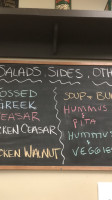 SALADS, SIDES, OTH
TOSSED
GREEK
CEASAR
CKEN CEASAR
CKEN WALNUT
SOUP & BU
HUMMUS
PITA
HUMMUS
VEGGIES